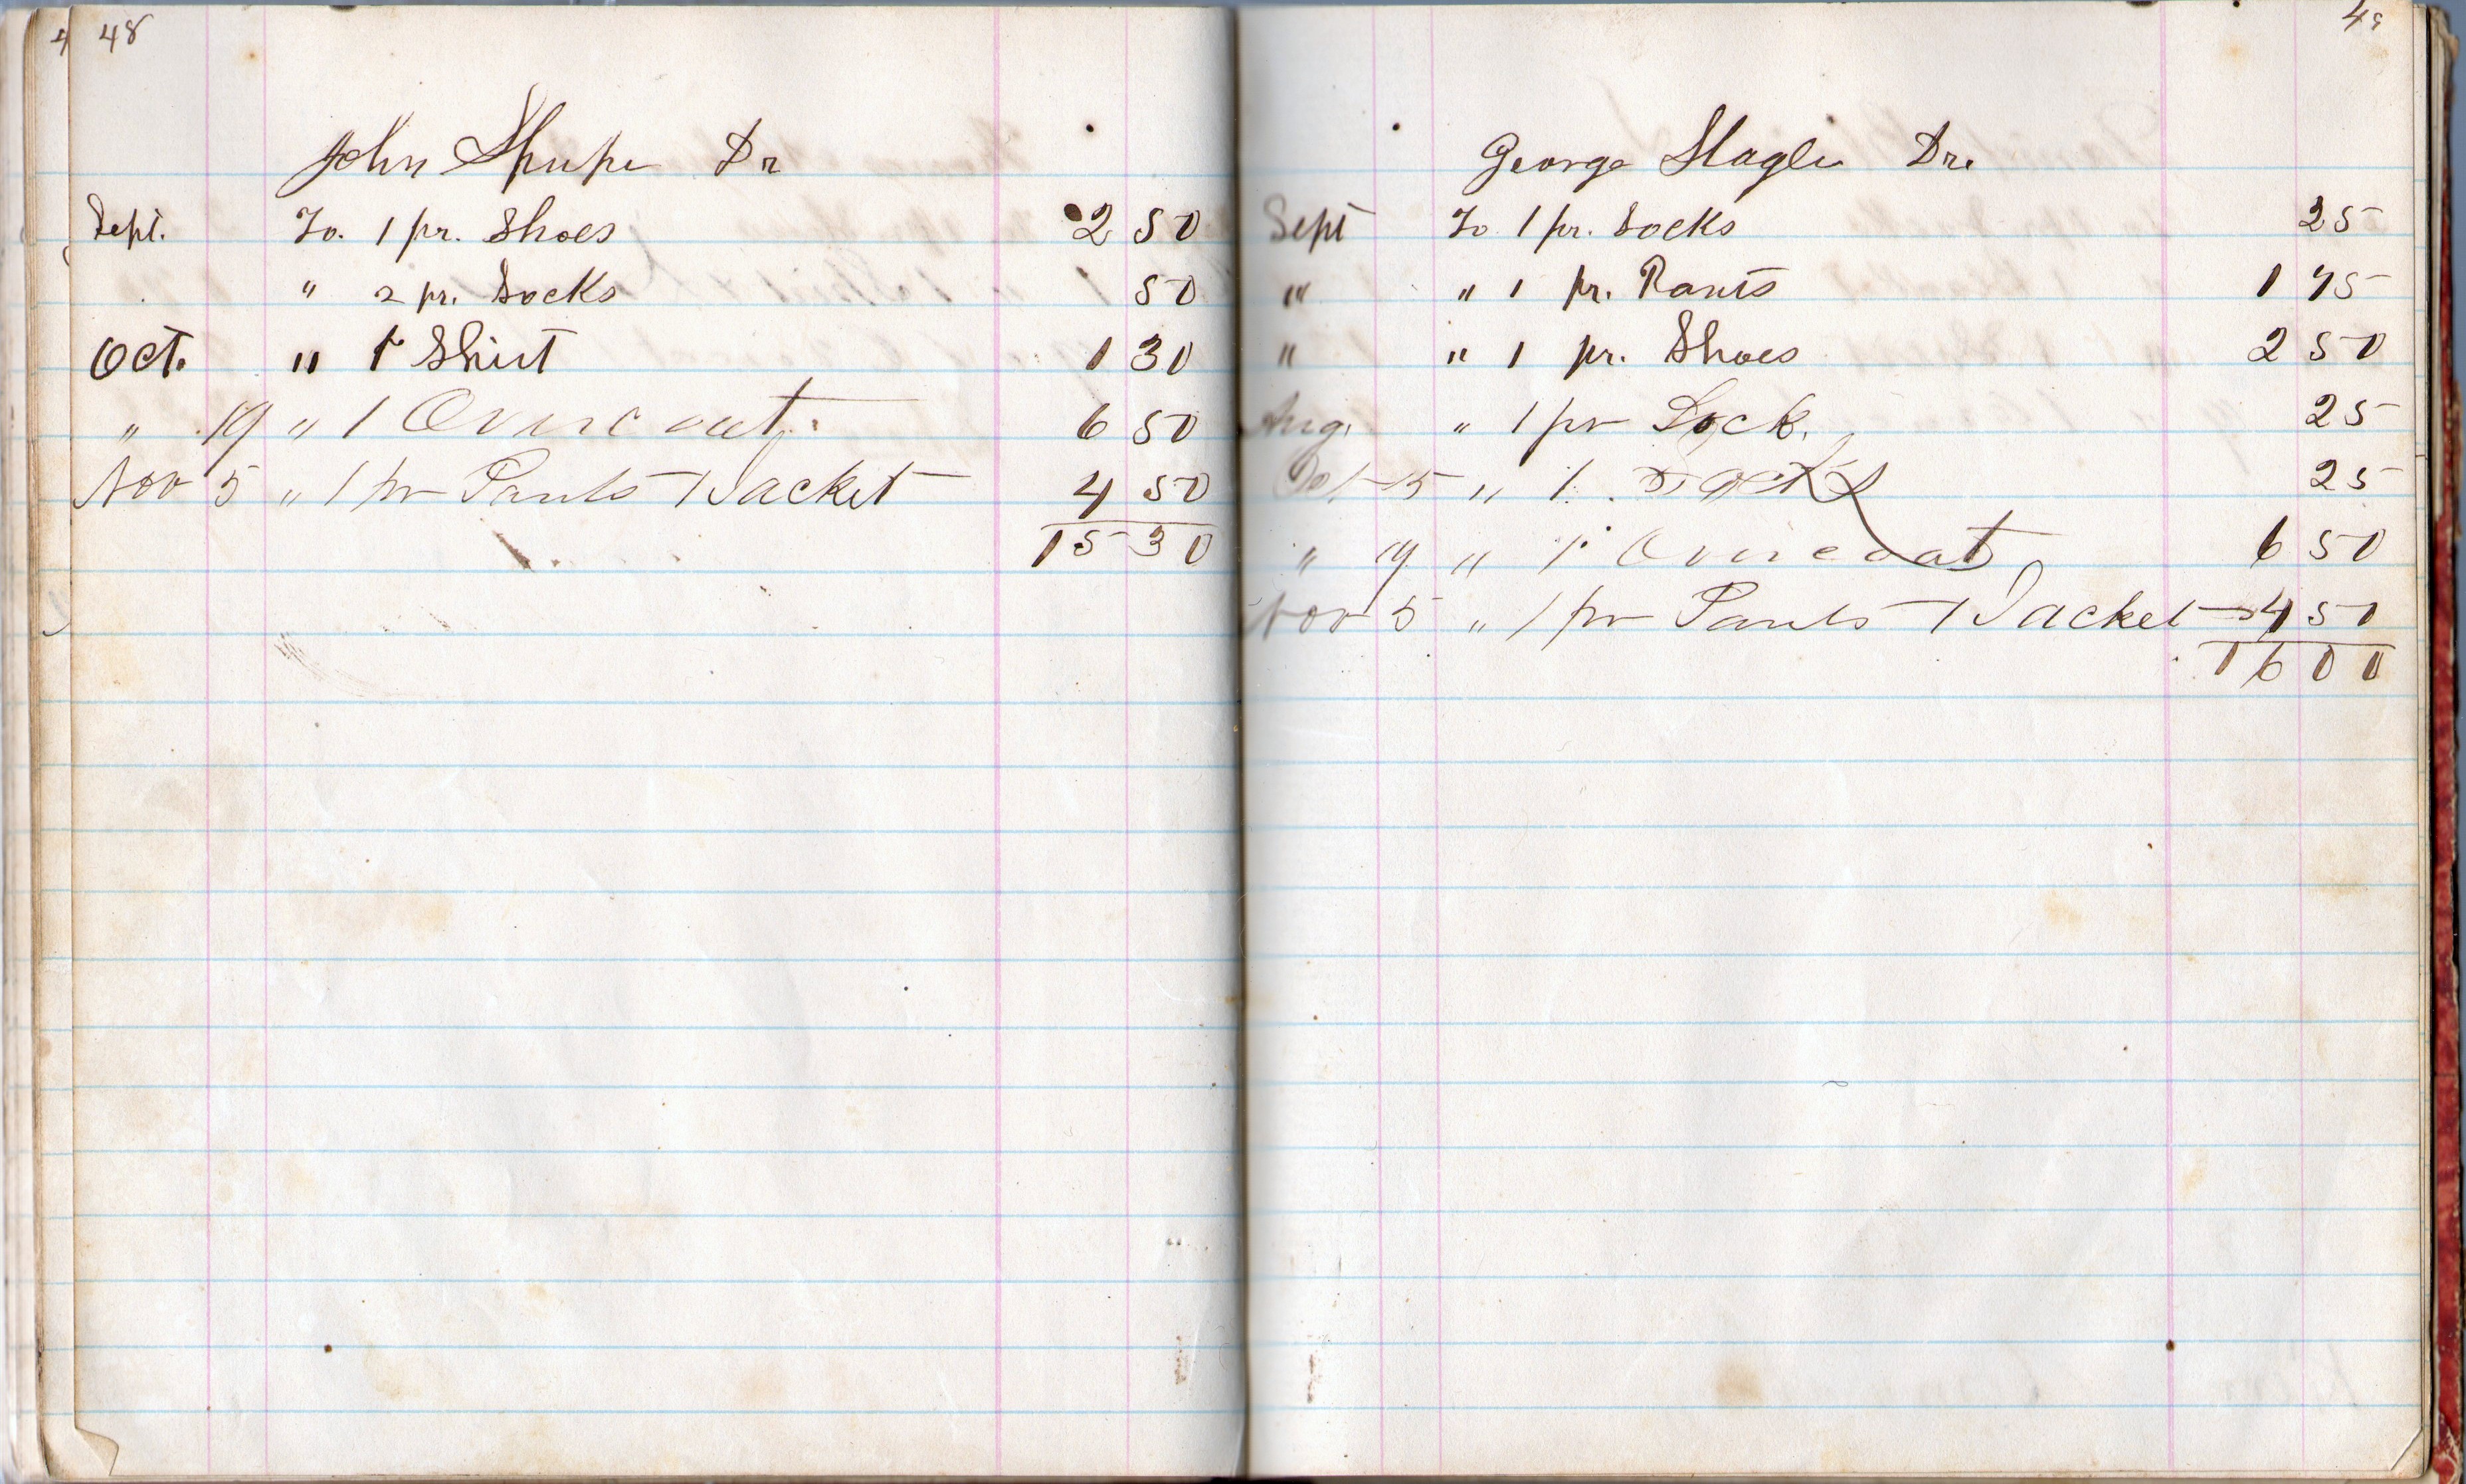 48
John Shupe Dr
Sept. To. 1 pr. Shoes 2 50
" 2 pr. Socks 50
Oct. " 1 Shirt 1 30
" 19 " 1 Overcoat 6 50
Nov 5 " 1 pr Pants 1 Jacket 4 50
15 30
49
George Slagle Dr.
Sept To 1 pr. Socks 25
" " 1 pr. Pants 1 75
" " 1 pr. Shoes 2 50
Aug. " 1 pr Sock. 25
Oct 15 " 1. Socks 25
" 19 " 1 Overcoat 6 50
Nov 5 " 1 pr Pants 1 Jacket 4 50
16 00